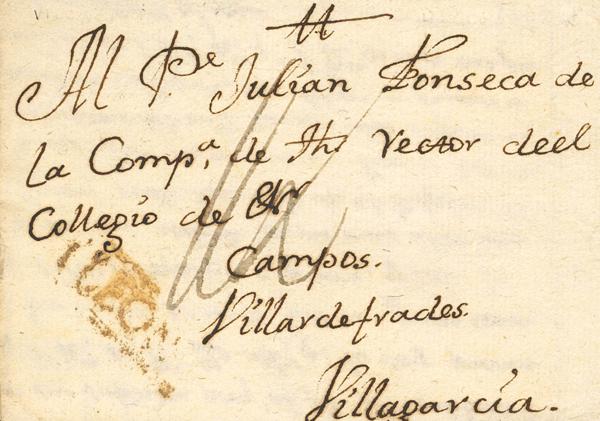 Al Pe Julian Fonseca de
la Compa, de Jhs Rector deel
Collegio de
Campos.
Villardefrades.
Villagarcia.